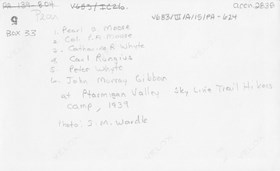 PA 189-804 V683/IC6b.
accn.2820
V683/III/A/15/PA-624
9
Box 33
1. Pearl B. Moore
2. Col. P.A. Moore
3. Catharine R. Whyte
4. Carl Rungius
5. Peter Whyte
6. John Murray Gibbon
at Ptarmigan Valley Sky Line Trail Hikers
camp, 1939
Photo: J. M. Wardle